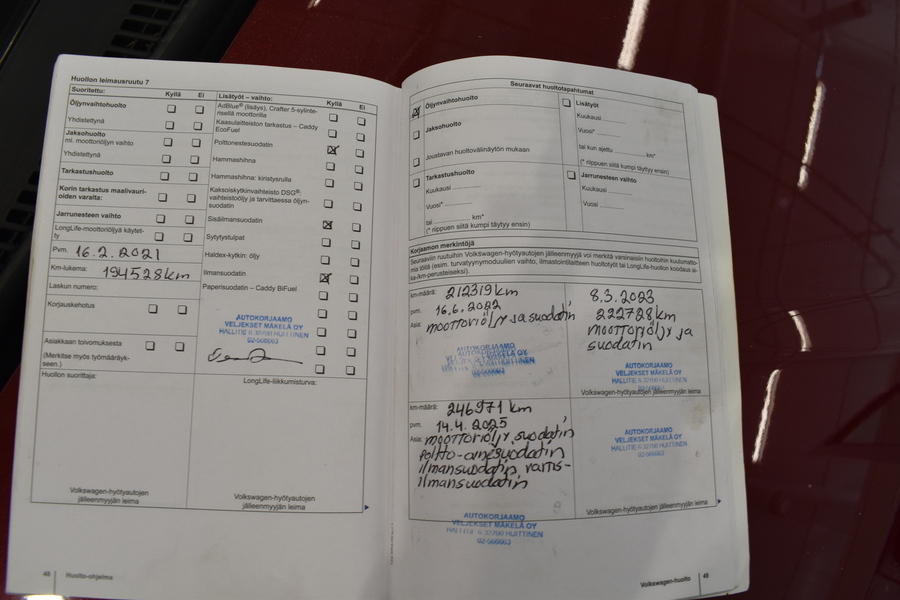 Huollon leimausruutu 7
Suoritettu: Kyllä Ei
Öljynvaihtohuolto
Yhdistettynä
Jaksohuolto
ml. moottoriöljyn vaihto
Yhdistettynä
Tarkastushuolto
Korin tarkastus maalivauri-
oiden varalta:
Jarrunesteen vaihto
LongLife-moottoriöljyä käytet-
ty
Pvm. 16.2.2021
Km-lukema: 194528km
Laskun numero:
Korjauskehotus
Asiakkaan toivomuksesta
(Merkitse myös työmääräyk-
seen.)
Huollon suorittaja:
Volkswagen-hyötyautojen
jälleenmyyjän leima
Lisätyöt – vaihto: Kyllä Ei
AdBlue® (lisäys), Crafter 5-sylinte-
risellä moottorilla
Kaasulaitteiston tarkastus – Caddy
EcoFuel
Polttonestesuodatin
Hammashihna
Hammashihna: kiristysrulla
Kaksoiskytkinvaihteisto DSG®:
vaihteistoöljy ja tarvittaessa öljyn-
suodatin
Sisäilmansuodatin
Sytytystulpat
Haldex-kytkin: öljy
Ilmansuodatin
Paperisuodatin – Caddy BiFuel
AUTOKORJAAMO
VELJEKSET MÄKELÄ OY
HALLITIE 6 32700 HUITTINEN
02-566663
LongLife-liikkumisturva:
Volkswagen-hyötyautojen
jälleenmyyjän leima
48 Huolto-ohjelma
Seuraavat huoltotapahtumat
Öljynvaihtohuolto
Jaksohuolto
Joustavan huoltovälinäytön mukaan
Lisätyöt
Kuukausi
Vuosi*
tai kun ajettu km*
(* riippuen siitä kumpi täytyy ensin)
Tarkastushuolto
Kuukausi
Vuosi*
tai km*
(* riippuen siitä kumpi täytyy ensin)
Jarrunesteen vaihto
Kuukausi
Vuosi
Korjaamon merkintöjä
Seuraaviin ruutuihin Volkswagen-hyötyautojen jälleenmyyjä voi merkitä varsinaisiin huoltoihin kuulumatto-
mia töitä (esim. turvatyynymoduulien vaihto, ilmastointilaitteen huoltotyöt tai LongLife-huollon koodaus ai-
ka-/km-perusteiseksi).
km-määrä: 212319km
pvm. 16.6.2022
Asia: moottoriöljy ja suodatin
AUTOKORJAAMO
VELJEKSET MÄKELÄ OY
HALLITIE 6 32700 HUITTINEN
02-566663
8.3.2023
222728km
moottoriöljy ja
suodatin
AUTOKORJAAMO
VELJEKSET MÄKELÄ OY
HALLITIE 6 32700 HUITTINEN
02-566663
Volkswagen-hyötyautojen jälleenmyyjän leima
km-määrä: 246971km
pvm. 14.4.2025
Asia: moottoriöljy, suodatin
poltto-ainesuodatin
ilmansuodatin, raitis-
ilmansuodatin
AUTOKORJAAMO
VELJEKSET MÄKELÄ OY
HALLITIE 6 32700 HUITTINEN
02-566663
AUTOKORJAAMO
VELJEKSET MÄKELÄ OY
HALLITIE 6 32700 HUITTINEN
02-566663
Volkswagen-hyötyautojen jälleenmyyjän leima
Volkswagen-huolto 49